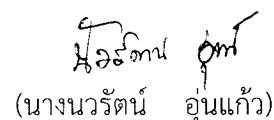 (นางนวรัตน์ อุ่นแก้ว)